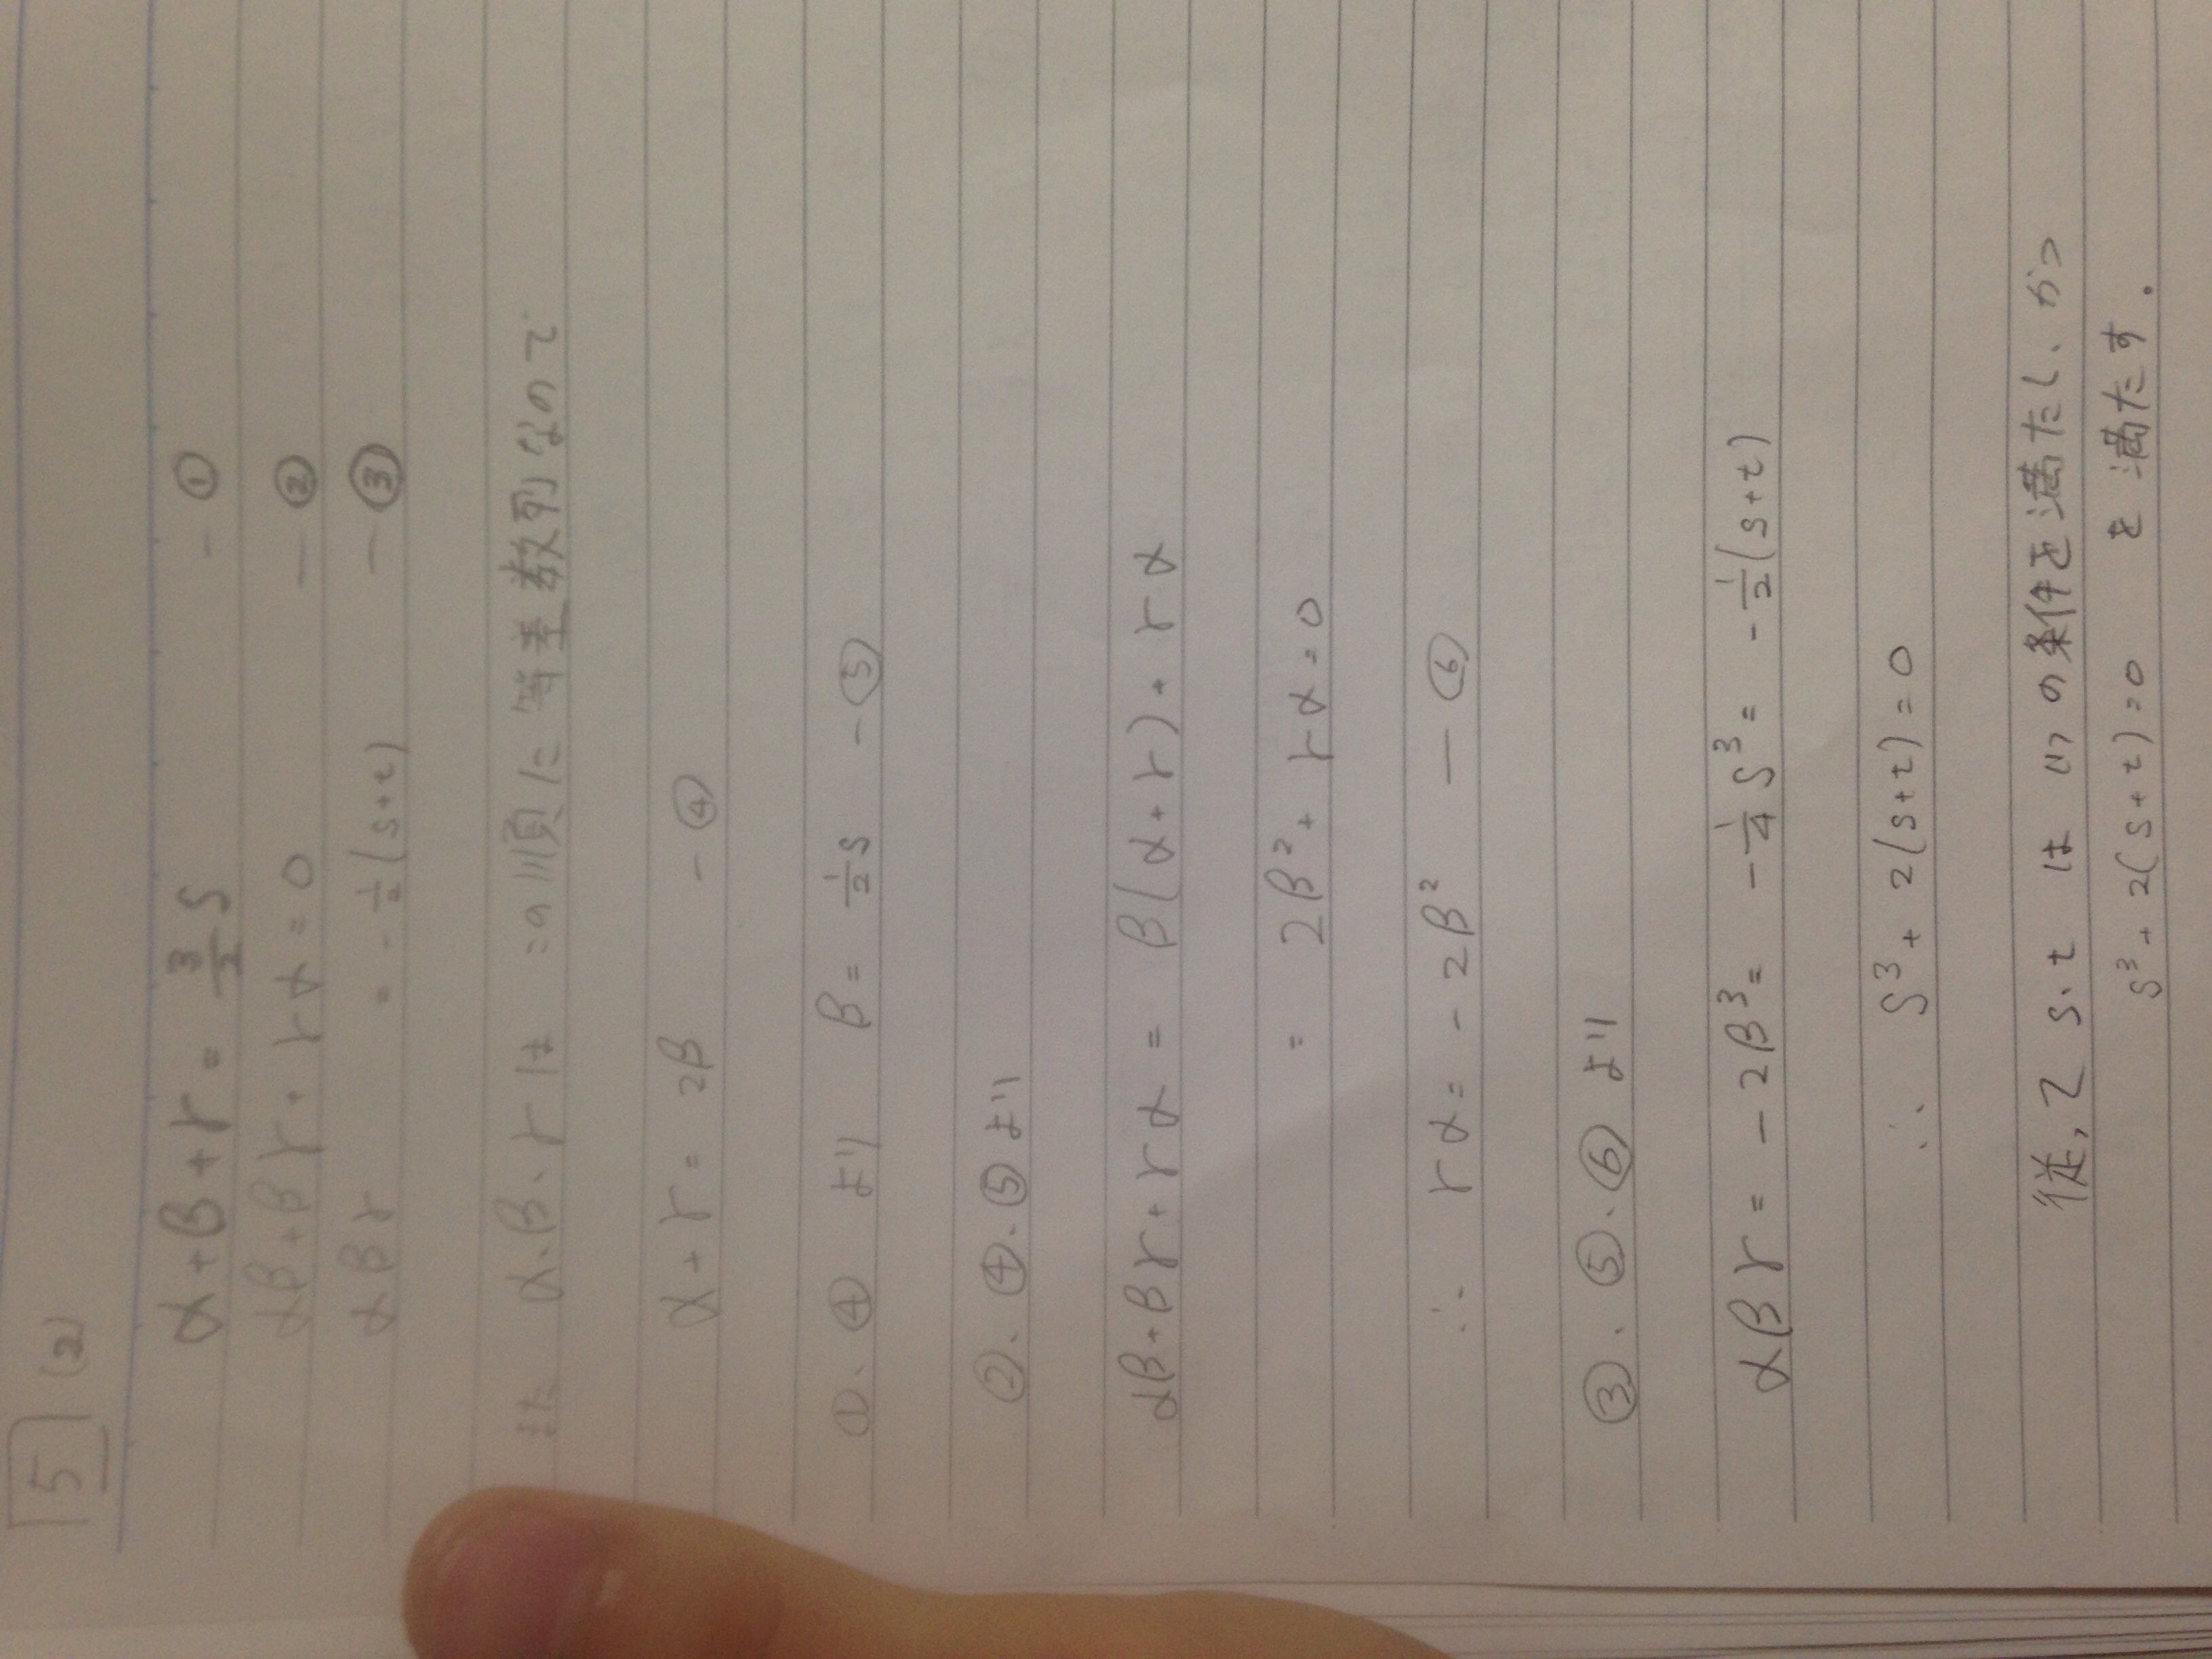 5 (2)
α+β+γ = 3/2 s - ①
αβ+βγ+γα=0 - ②
αβγ = -1/2(s+t) - ③
また α、β、γ は この順に等差数列なので
α+γ = 2β - ④
①、④ より β = 1/2 s - ⑤
②、④、⑤ より
αβ+βγ+γα = β(α+γ)+γα
= 2β²+γα=0
∴ γα = -2β² - ⑥
③、⑤、⑥ より
αβγ = -2β³ = -1/4 s³ = -1/2(s+t)
∴ s³+2(s+t)=0
従って s、t は (1)の条件を満たし、かつ
s³+2(s+t)=0 を満たす.